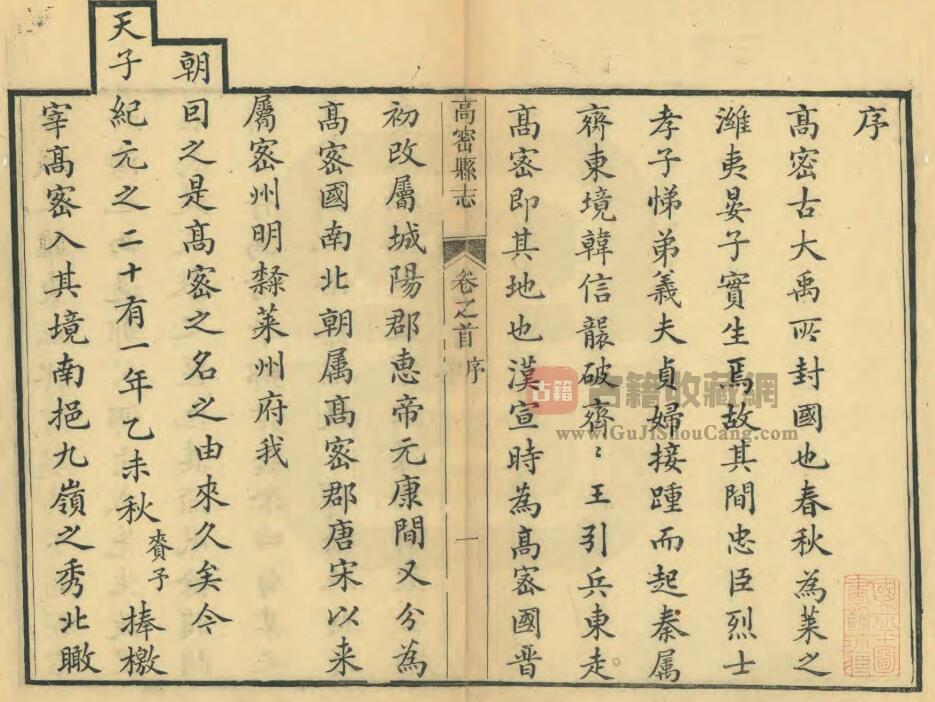 序
髙宻古大禹所封國也春秋為萊之
濰夷晏子實生焉故其間忠臣烈士
孝子悌弟義夫貞婦接踵而起秦属
齊東境韓信襲破齊〻王引兵東走
髙宻即其地也漢宣時為髙宻國晋
高密縣志
卷之首
序
一
初改属城陽郡恵帝元康間又分為
髙宻國南北朝属髙宻郡唐宋以来
屬宻州明隸萊州府我
朝因之是髙宻之名之由來久矣今
天子紀元之二十有一年乙未秋賡予捧檄
宰髙宻入其境南挹九嶺之秀北瞰
古籍
古籍收藏網
www.GuJiShouCang.com